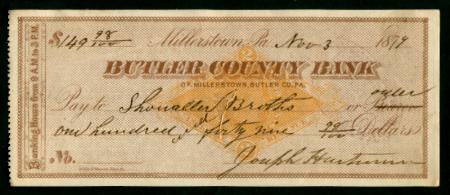 $149 98/100 Millerstown, Pa. Nov 3 1879
BUTLER COUNTY BANK
OF MILLERSTOWN, BUTLER CO. PA.
Pay to Showalter Broths or order
one hundred & forty nine 98/100 Dollars
No.
Joseph Hartman
Banking Hours from 9 A.M. to 3 P.M.